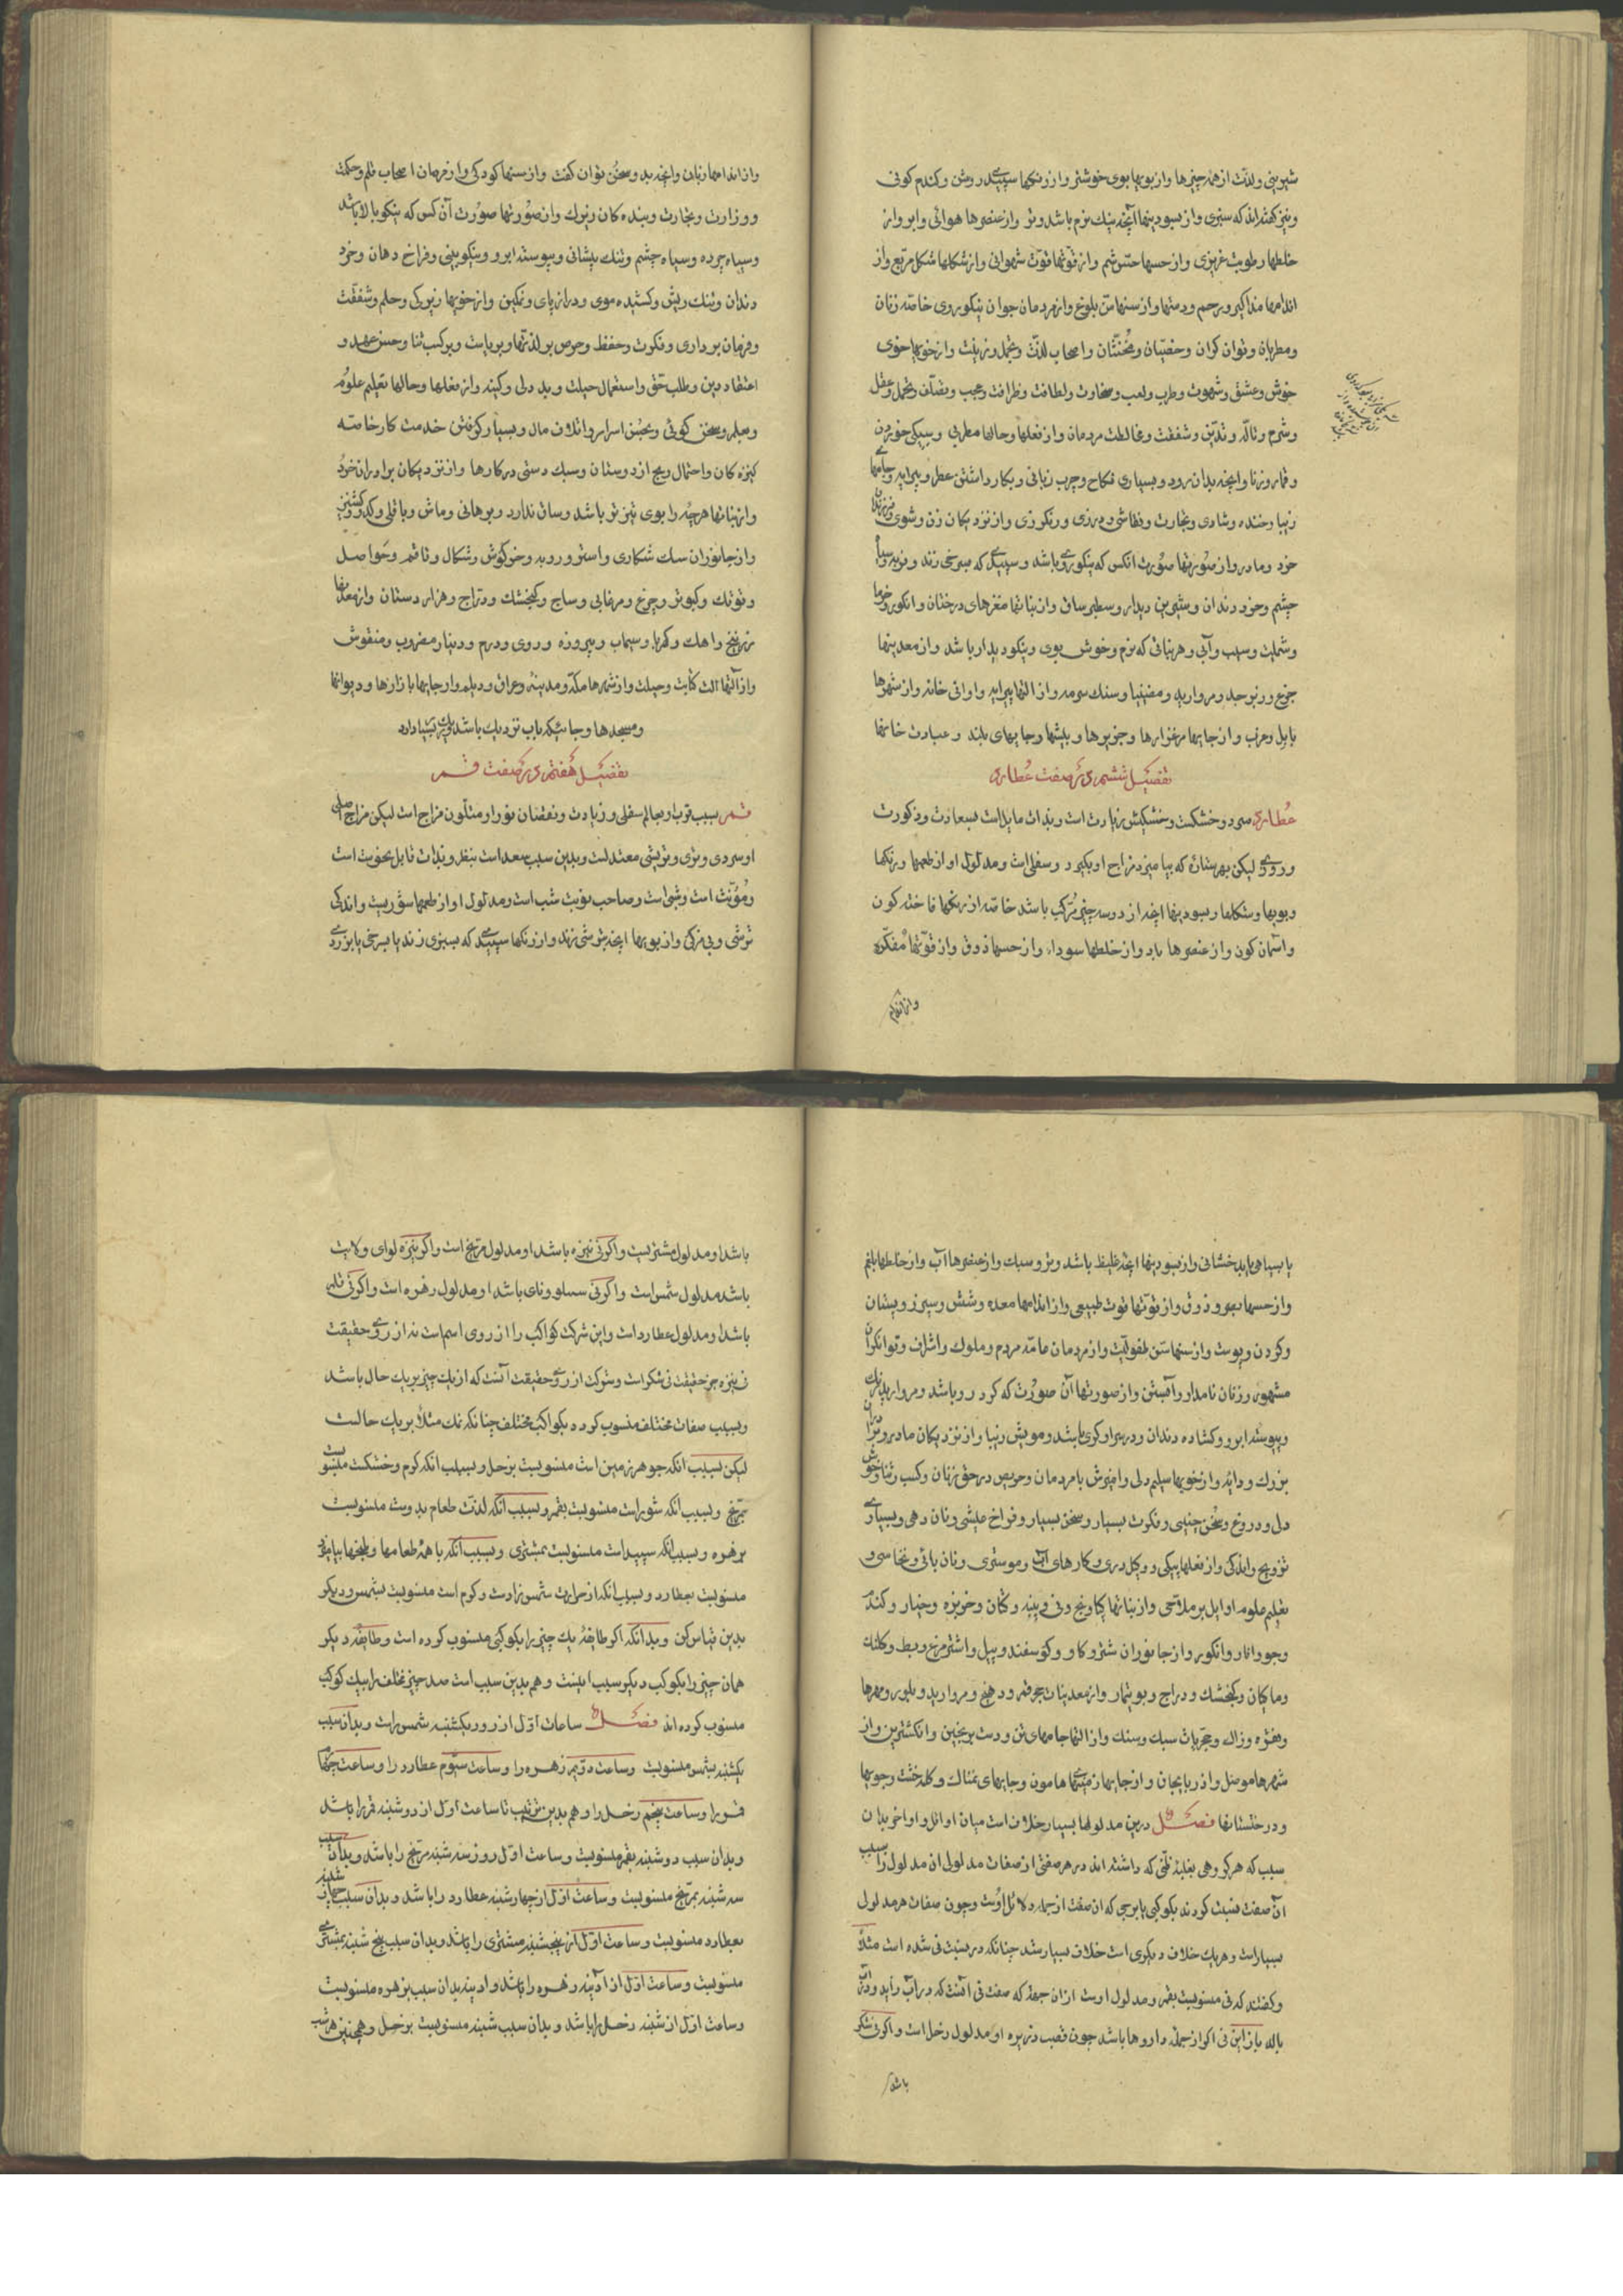 شیرینی ولذت از همه چیزها واز بویها بوی خوشتر واز رنکها سپیدی روشن وکندم کونی
ونیز کفته‌اند که سبزی واز بسودینها آنچه نیك نرم باشد وتر واز عنصرها هوائی وابر واز
خلطها رطوبت غریزی واز حسها حس شم واز قوتها قوت شهوانی واز شکلها شکل مربع واز
اندامها مذاکیر ورحم ودستها واز سنها سن بلوغ واز مردمان جوان نیکو روی خاصه زنان
ومطربان ونوان کران وخصیان ومخنثان واصحاب لذت وتجمل وزینت واز خویها خوی
خوش وعشق وشهوت وطرب ولعب وسخاوت ولطافت وظرافت وعجب وتصلف وتجمل وعقل
وشرم وتاله وتدین وشفقت ومخالطت مردمان واز فعلها وحالها مطربی وسیکی خوردن
وقمار وزنا وانچه بدان رود وبسیاری نکاح وچرب زبانی وبکار داشتن عطر وپیرایه وجامهاے
زیبا وخنده وشادی وتجارت ونقاشی ودرزی ورنکرزی واز نزدیکان زن وشوی وفرزندان
خرد ومادر واز صورتها صورت انکس که نیکوروے باشد وسپیدے که بسرخی زند وفربه وسیاه
چشم وخرد دندان وشیرین دیدار وسطبر ساق واز نباتها مغزهای درختان وانکور وخرما
وشملیت وسیب وآبی وهر نباتی که نرم وخوش بوی ونیکو دیدار باشد واز معدنیها
جزع وزبرجد ومروارید ومغنیسیا وسنك سرمه واز آلتها پیرایه واوانی خانه واز شهرها
بابل وعرب واز جایها مرغزارها وجزیرها وبیشها وجایهای بلند وعبادت خانها
تفصیل ششم در صفت عطارد
عطارد سرد وخشکست وخشکیش زیادت است وبذات مایل است بسعادت وذکورت
وروزی لیکن بهر ستاره که بیامیزد مزاج او بکیرد وسفلی است ومدلول او از طعمها ورنکها
وبویها وشکلها وبسودینها انچه از دو سه چیز مرکب باشد خاصه از رنکها فاخته کون
واسمان کون واز عنصرها باد واز خلطها سوداء واز حسها ذوق واز قوتها مفکره
واز اندام
واز اندامها زبان وانچه بدو سخن توان کفت واز سنها کودکی واز مردمان اصحاب قلم وحکمت
ووزارت وتجارت وبنده کان زیرك واز صورتها صورت آن کس که نیکو بالا باشد
وسیاه چرده وسیاه چشم وتنك پیشانی وپیوسته ابرو ونیکو بینی وفراخ دهان وخرد
دندان وتنك ریش وکشیده موی ودراز پای ونمکین واز خویها زیرکی وحلم وشفقت
وفرمان برداری وفکرت وحفظ وحرص بر لذتها وبر ریاست وبر کسب ثنا وحسن عهد و
اعتقاد دین وطلب حق واستعمال حیلت وبد دلی وکینه واز فعلها وحالها تعلیم علوم
وحیله وسخن کوئی وتجسس اسرار واتلاف مال وبسیار کرفتن خدمت کار خاصه
کنیزه کان واحتمال رنج از دوستان وسبك دستی در کارها واز نزدیکان برادران خرد
واز نباتها هرچه را بوی تیز تر باشد وساق ندارد وبرهانی وماش وباقلی وکدو وکشنیز
واز جانوران سك شکاری واستر وروبه وخرکوش وشکال وقاقم وحواصل
وفوتك وکبوتر وچرغ ومرغابی وساج وکنجشك ودراج وهزار دستان واز معدنها
زرنیخ واهك وکهربا وسیماب وپیروزه وروی ودرم ودینار مضروب ومنقوش
واز آلتها الت کتابت وحیلت واز شهرها مکه ومدینه وعراق ودیلم واز جایها بازارها ودیوانها
ومسجدها وجائیکه باب نزدیك باشد
تفصیل هفتم در صفت قمر
قمر بسبب قرب او بعالم سفلی وزیادت ونقصان نور او متلون مزاج است لیکن مزاج اصلی
او سردی وتری وتریش معتدلست وبدین سبب سعد است بنقل وبذات قابل نحوست است
ومؤنث است وشبی است وصاحب نوبت شب است ومدلول او از طعمها شوریست واندکی
ترشی وبی مزکی واز بویها انچه بترشی زند واز رنکها سپیدے که بسبزی زند یا بسرخی یا بزردی
یا بسیاهی یا بدخشانی واز بسودینها انچه غلیظ باشد وتر وسبك واز عنصرها آب واز خلطها بلغم
واز حسها بصر وذوق واز قوتها قوت طبیعی واز اندامها معده وشش وسپرز وپستان
وکردن وپوست واز سنها سن طفولیت واز مردمان عامه مردم وملوك واشراف وتوانکران
مشهور وزنان نامدار وآبستن واز صورتها آن صورت که کرد رو باشد ومروارید رنك
وپیوسته ابرو وکشاده دندان ودر سر او کری باشد ومویش زیبا واز نزدیکان مادر وبرادران
بزرك ودایه واز خویها سلیم دلی وامیزش با مردمان وحریص در حق زنان وکسب ثنا وخوش
دلی ودروغ وسخن چینی وفکرت بسیار وسخن بسیار وفراخ عیشی ونان دهی وبسیاری
تزویج واندکی واز فعلها پیکی ووکیل دری وکارهای آب ومومستری ونان بائی ونخاسی و
تعلیم علوم اوایل بر ملاحی واز نباتها کیاونج ونی وپنبه وکتان وخربزه وخیار وکندم
وجو وانار وانکور واز جانوران شتر وکاو وکوسفند وپیل واشتر مرغ وبط وکلنك
وماکیان وکنجشك ودراج وبوتیمار واز معدنیات جوهر ودهنج ومروارید وبلور ومهرها
ونقره وزاك وحجریات سبك وسنك واز آلتها جامهای تن ودست برنجین وانکشترین واز
شهرها موصل واذربایجان واز جایها زمینهای هامون وجایهای نمناك وکله خشت وجویها
ودرختستانها فصل درین مدلولها بسیار خلاف است میان اوائل واواخر بدان
سبب که هر کروهی بغلبه ظنی که داشته اند در هر صفتی از صفات مدلولی ان مدلول را بسبب
آن صفت نسبت کردند بکوکبی یا برجی که ان صفت از جمله دلائل اوست وچون صفات هر مدلول
بسیار است وهر یك خلاف دیکری است خلاف بسیار شد چنانکه در نسبت نی شده است مثلا
وکفتند که نی منسوبست بقمر ومدلول اوست ازان جهة که صفت نی آنست که در آب زاید ودر آب
بالد باز این نی اکر از جمله داروها باشد چون قصب ذریره او مدلول زحل است واکر نی شکر
باشد
باشد او مدلول مشتریست واکر نی نیزه باشد او مدلول مریخ است واکر نیزه لوای ولایت
باشد مدلول شمس است واکر نی ونای باشد او مدلول زهره است واکر نی قلم
باشد او مدلول عطارد است واین شرکت کواکب را از روی اسم است نه از روے حقیقت
نیزه جز حقیقت نی شکر است وشرکت از روی حقیقت آنست که از یك چیز بر یك حال باشد
وبسبب صفات مختلف منسوب کردد بکواکب مختلف چنانکه نمك مثلا بر یك حالست
لیکن بسبب انکه جوهر زمین است منسوبست بزحل وبسبب انکه کرم وخشکست منسوبست
بمریخ وبسبب انکه شور است منسوبست بقمر وبسبب انکه لذت طعام بدوست منسوبست
بزهره وبسبب انکه سپید است منسوبست بمشتری وبسبب آنکه با همه طعامها وطبعها بیامیزد
منسوبست بعطارد وبسبب انکه از حرارت شمس زادست وکرم است منسوبست بشمس ودیکر
بدین قیاس کن وبدانکه اکر طایفه یك چیز را بکوکبی منسوب کرده است وطایفه دیکر
همان چیز را بکوکب دیکر سبب اینست وهم بدین سبب است صد چیز مختلف را بیك کوکب
منسوب کرده اند فصل ساعات اول از روز یکشنبه شمس راست وبدان سبب
یکشنبه بشمس منسوبست وساعت دویم زهره را وساعت سیوم عطارد را وساعت چهارم
قمر را وساعت پنجم زحل را وهم بدین ترتیب تا ساعت اول از دوشنبه قمر را باشد
وبدان سبب دوشنبه بقمر منسوبست وساعت اول روز سه شنبه مریخ را باشد وبدان سبب
سه شنبه بمریخ منسوبست وساعت اول از چهارشنبه عطارد را باشد وبدان سبب چهار شنبه
بعطارد منسوبست وساعت اول از پنجشنبه مشتری را باشد وبدان سبب پنج شنبه بمشتری
منسوبست وساعت اول از آدینه زهره را باشد وادینه بدان سبب بزهره منسوبست
وساعت اول از شنبه زحل را باشد وبدان سبب شنبه منسوبست بزحل وهمچنین هر شب